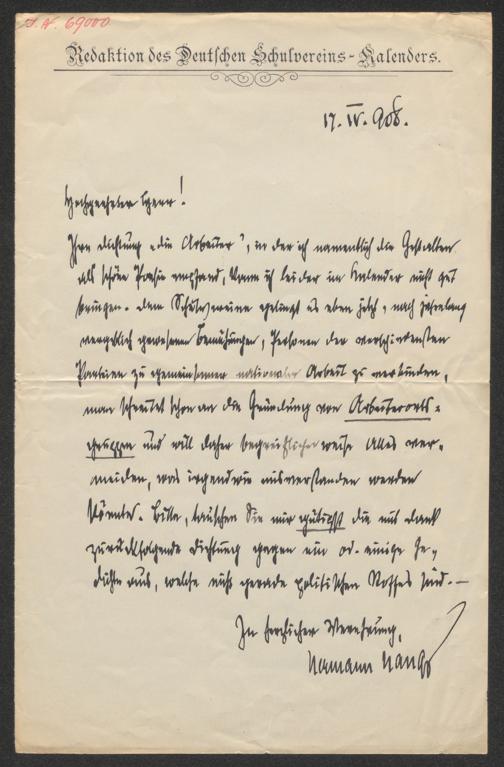 I. N. 69000
Redaktion des Deutschen Schulvereins-Kalenders.
17. IV. 908.
Hochgeehrter Herr!
Ihre Dichtung „die Arbeiter", in der ich namentlich die Gestalten
als schöne Poesie empfand, kann ich leider im Kalender nicht gut
bringen. Dem Schulvereine gelingt es eben jetzt, nach jahrelang
vergeblich gewesenen Bemühungen, Personen der verschiedensten
Parteien zu gemeinsamer nationaler Arbeit zu verbinden,
man schreitet schon an die Gründung von Arbeiterorts-
gruppen und will daher begreiflicherweise Alles ver-
meiden, was irgendwie misverstanden werden
könnte. Bitte, tauschen Sie mir gütigst die mit Dank
zurückfolgende Dichtung gegen ein od. einige Ge-
dichte aus, welche nicht gerade politischen Stoffes sind. —
In herzlicher Verehrung,